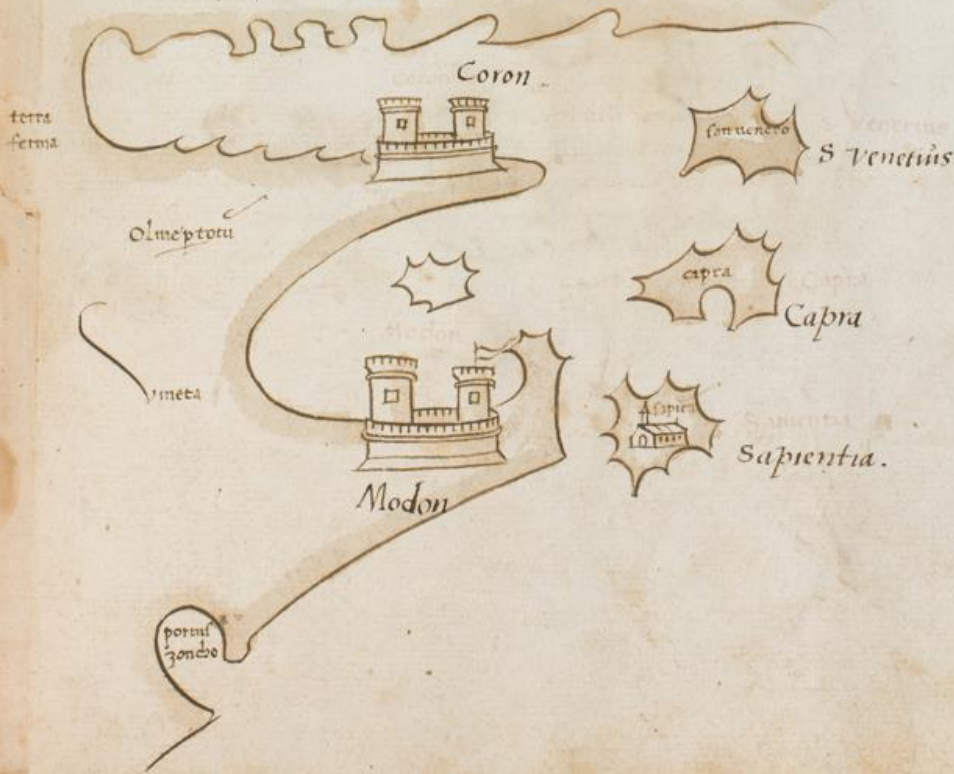 Coron
terra
ferma
san venerio
S Venerius
Olmeptotu
capra
Capra
vmeta
sapien
Sapientia.
Modon
portus
zoncho